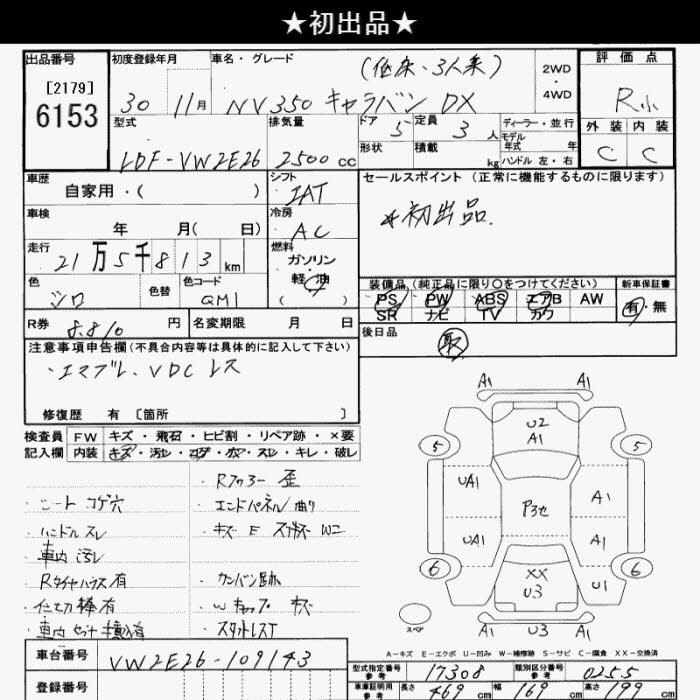 ★初出品★
出品番号
[2179]
6153
初度登録年月 車名・グレード
(低床・3人乗)
30 11月 NV350 キャラバン DX
2WD
・
4WD
評価点
R小
外装 内装
C C
型式 排気量 ドア 定員
LDF-VW2E26 2500cc 5 3人
形状 積載 kg
ディーラー・並行
モデル年式 年
ハンドル 左・右
車歴
自家用・( )
シフト
IAT
セールスポイント (正常に機能するものに限ります)
*初出品.
車検
年 月( 日)
冷房
AC
走行
21万5千813km
燃料
ガソリン
・
軽油
( )
色 色替 色コード
シロ QM1
装備品 (純正品に限り○をつけてください) 新車保証書
PS PW ABS エアB AW 有・無
SR ナビ TV カワ
R券 8.810円 名変期限 月 日
後日品 取
注意事項申告欄(不具合内容等は具体的に記入して下さい)
・エマブレ、VDCレス
修復歴 有 [箇所 ]
検査員 FW キズ・飛石・ヒビ割・リペア跡・×要
記入欄 内装 キズ・汚レ・コゲ・穴・スレ・キレ・破レ
・Rフロアー 歪
・シート コゲ穴 ・エンドパネル 曲り
・ハンドル スレ
・車内 汚レ
・Rタイヤハウス有 ・カンバン跡
・仕切棒有 ・Wキャップ キズ
・スタットレス7
A1 A1
U2
A1
5 5
UA1 A1
P3セ
UA1 A1
6 6
XX
U3
U1
A1 U3 A1
スペア
A-キズ E-エクボ U-凹み W-補修跡 S-サビ C-腐食 XX-交換済
車台番号 VW2E26-109143
登録番号
型式指定番号 参考 17308 類別区分番号 参考 0255
車庫証明用 参考 長さ 469cm 幅 169cm 高さ 199cm